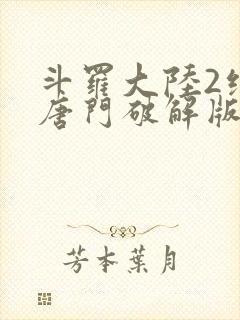 斗羅大陸2絕
唐門破解版
芳本葉月